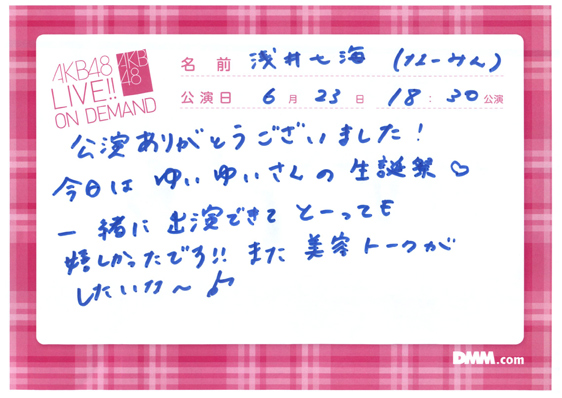 AKB48
LIVE!!
ON DEMAND
AKB
48
名 前 浅井七海 (なーみん)
公演日 6月23日 18:30公演
公演ありがとうございました!
今日は ゆいゆいさんの 生誕祭♡
一緒に出演できて とーっても
嬉しかったです!! また 美容トークが
したいな〜♪
DMM.com